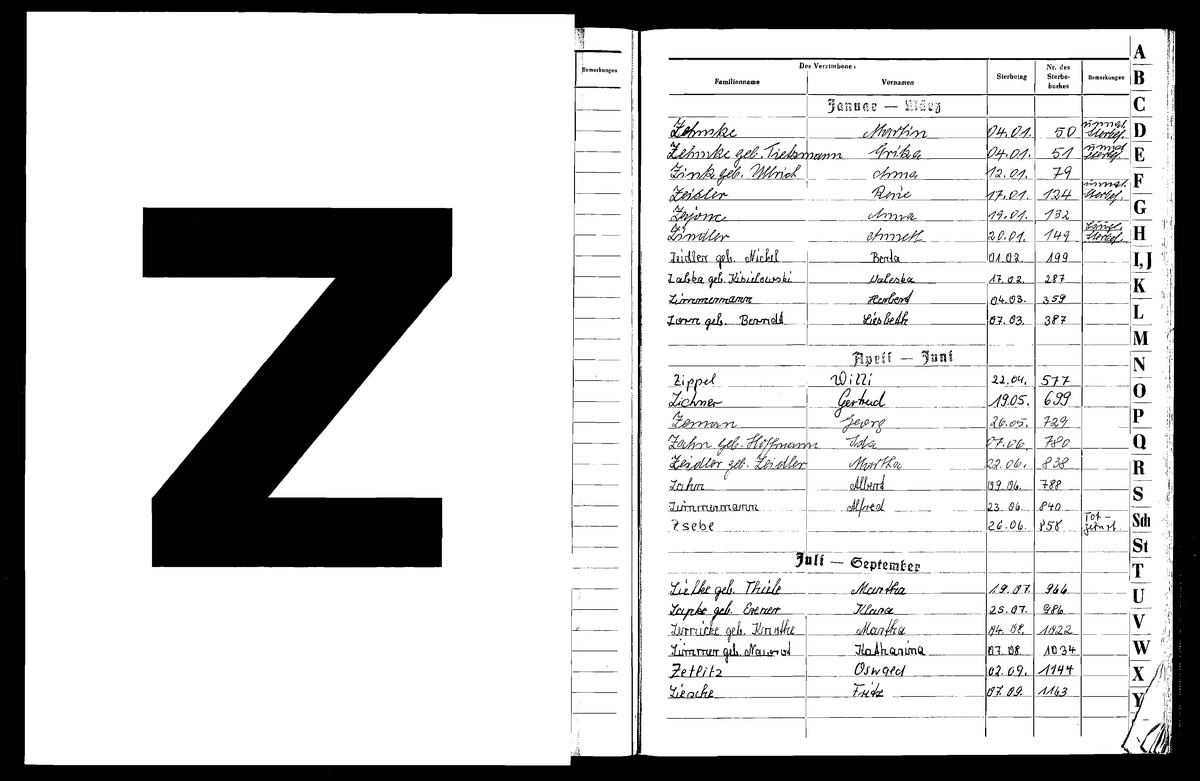 Z
Bemerkungen
Des Verstorbenen
Familienname Vornamen Sterbetag Nr. des Sterbe- buches Bemerkungen
Januar — März
Zehmke Martin 04.01. 50
Zehmke geb. Tietzmann Erika 04.01. 51
Zink geb. Ullrich Anna 12.01. 79
Zeisler René 17.01. 124
Zajonc Anna 19.01. 132
Zindler Annett 20.01. 149
Zeidler geb. Nickel Berta 01.02. 199
Zabka geb. Kisielowski Valeska 17.02. 287
Zimmermann Herbert 04.03. 359
Zorn geb. Berndt Liesbeth 07.03. 387
April — Juni
Zippel Willi 22.04. 577
Zichner Gertrud 19.05. 699
Zeman Georg 26.05. 729
Zahn geb. Hoffmann Ida 07.06. 780
Zeidler geb. Zeidler Martha 22.06. 838
Zahn Albert 09.06. 788
Zimmermann Alfred 23.06. 840
Zsebe 26.06. 858 Tot-
geburt.
Juli — September
Zielke geb. Thiele Martha 19.07. 966
Zapke geb. Klara 25.07. 986
geb. Martha 04.08. 1022
Zimmer geb. Nawrot Katharina 07.08. 1034
Zetlitz Oswald 02.09. 1144
Ziesche Fritz 07.09. 1163
A
B
C
D
E
F
G
H
I, J
K
L
M
N
O
P
Q
R
S
Sch
St
T
U
V
W
X
Y